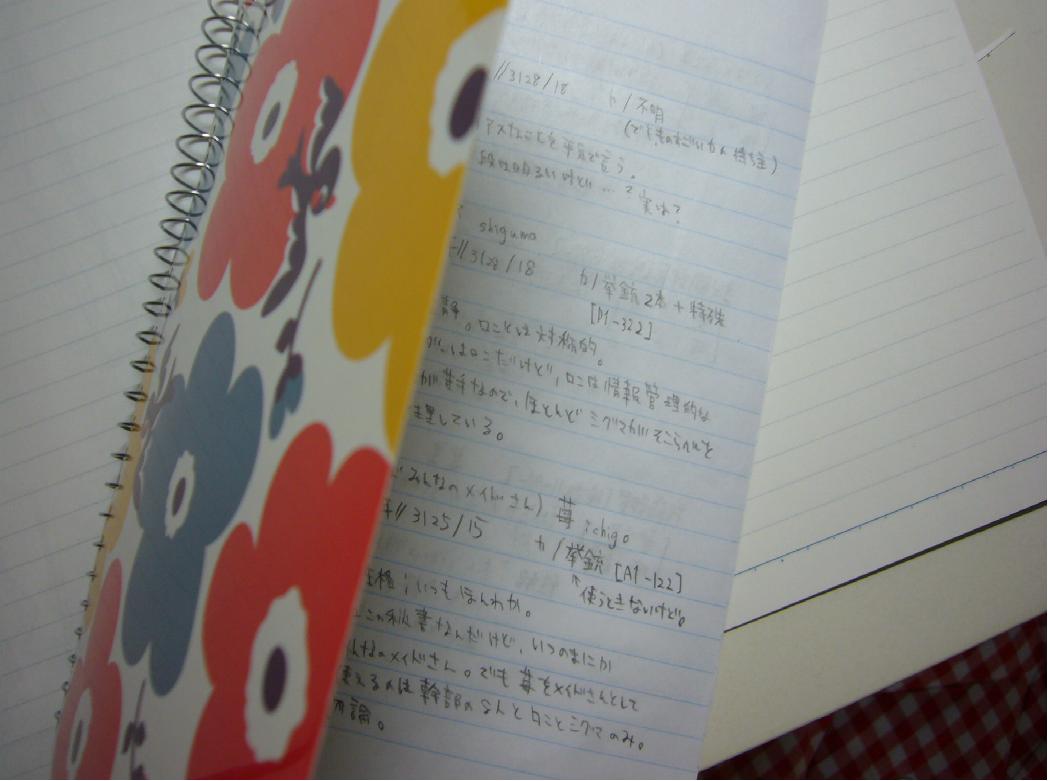 //3128/18 カ/不明
(でもものすごい力の持ち主)
なことを平気で言う。
明るいけど…? 実は?
shiguma
//3128/18 カ/拳銃2本+特殊
[D1-322]
静。ロことは対称的。
はロこだけど、ロこは情報管理的な
が苦手なので、ほとんどシグマがそこらへんを
理している。
みんなのメイドさん) 苺 ichigo
//3125/15 カ/拳銃 [A1-122]
性格;いつもほんわか。 ↑使うときないけど。
この秘書なんだけど、いつのまにか
んなのメイドさん。でも苺をメイドさんとして
使えるのは幹部の8人とロことシグマのみ。
勿論。